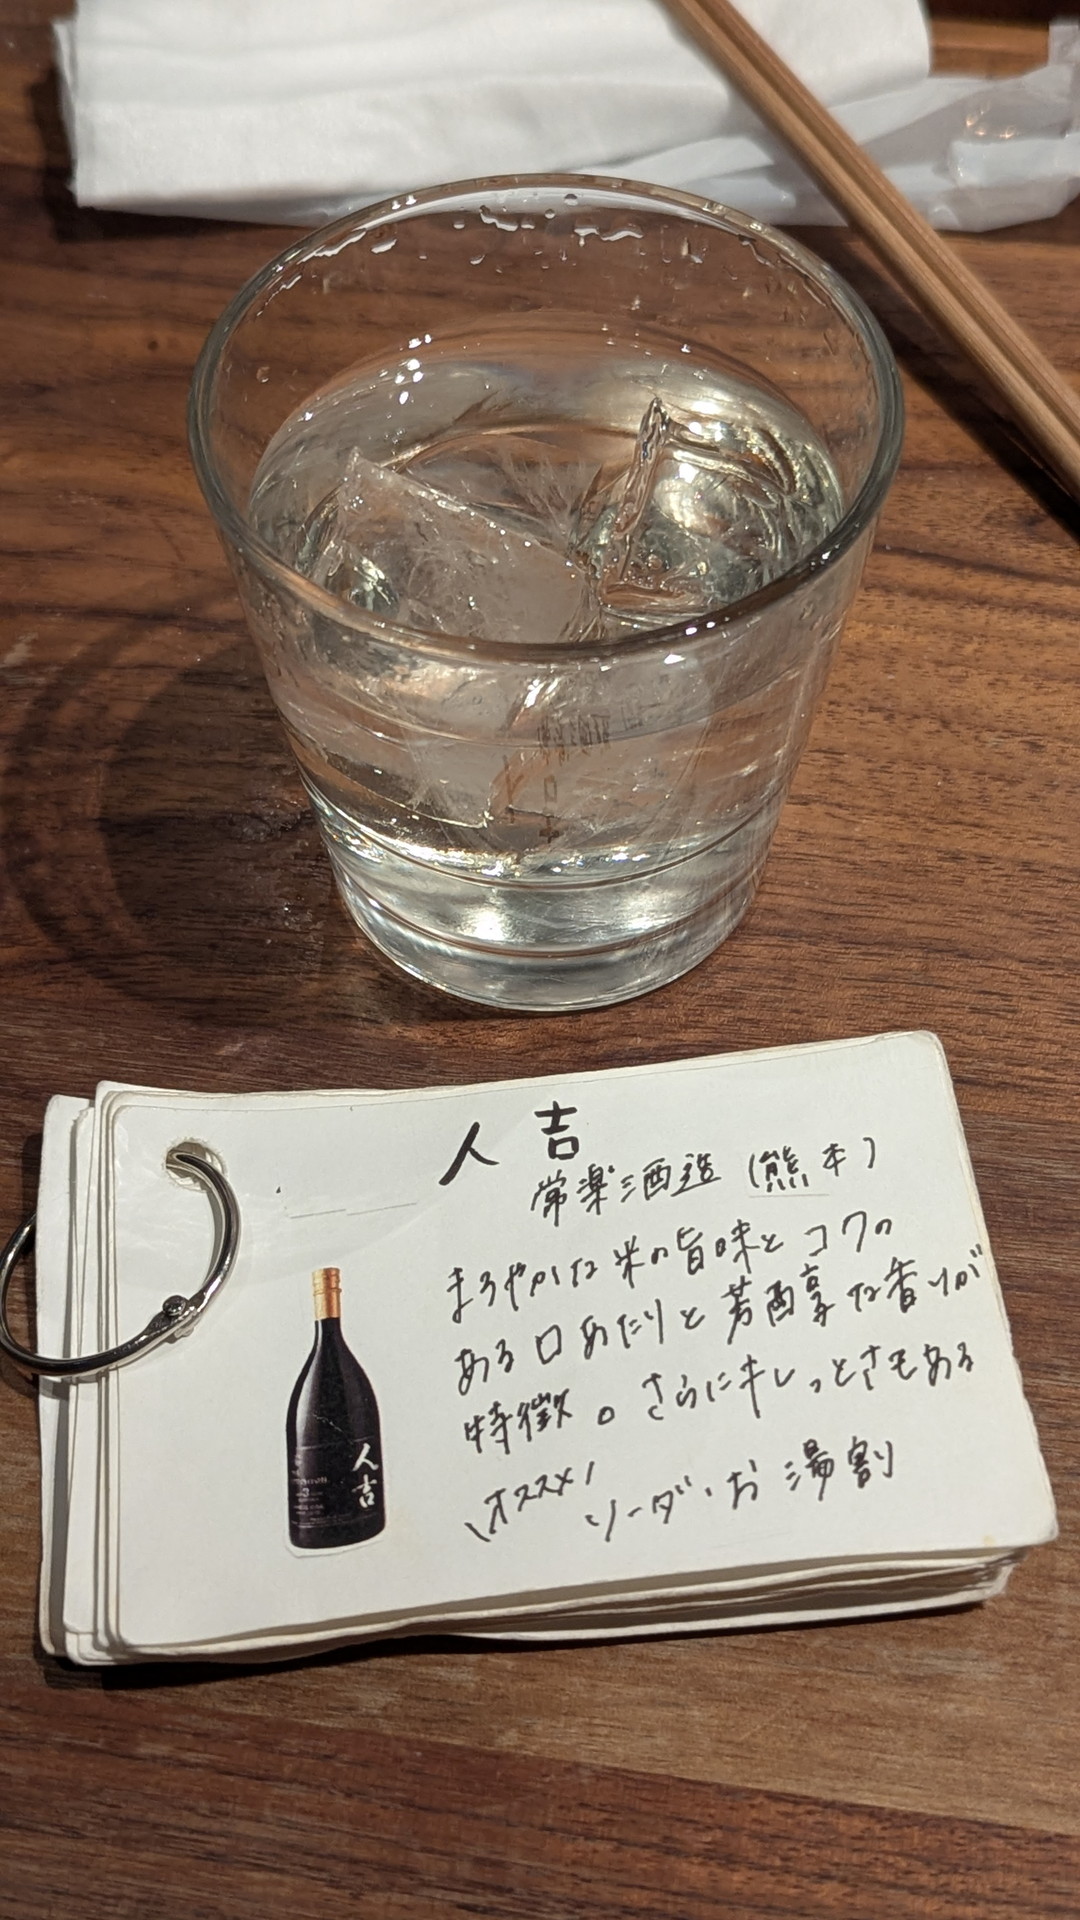 人吉
常楽酒造(熊本)
まろやかな米の旨味とコクの
ある口あたりと芳醇な香りが
特徴。さらにキレっとさもある
\オススメ/
ソーダ・お湯割
人吉